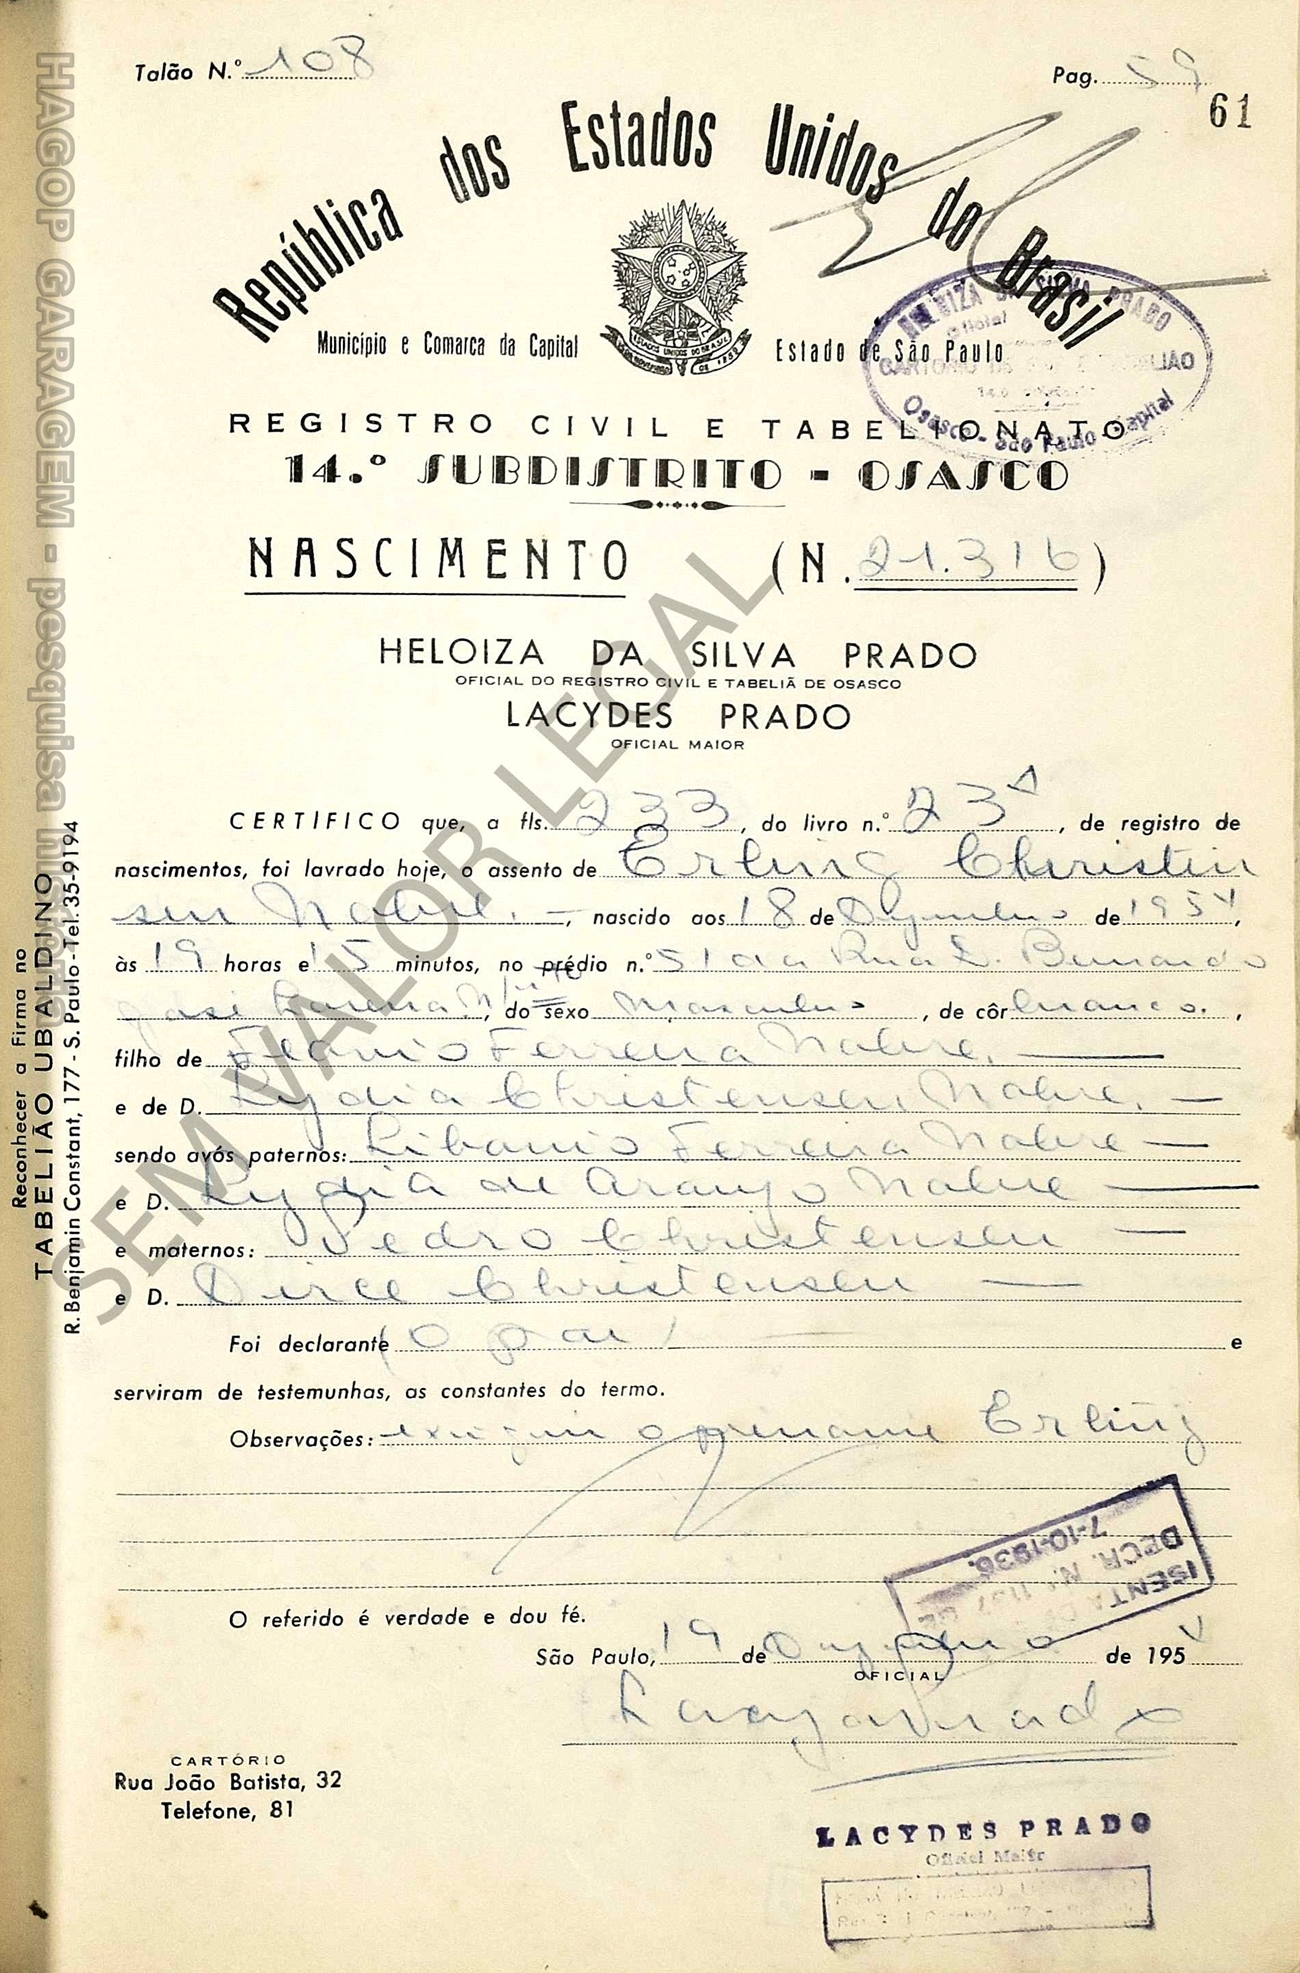 Talão N.º 108
Pag. 59
61
República dos Estados Unidos do Brasil
Município e Comarca da Capital
Estado de São Paulo
ESTADOS UNIDOS DO BRASIL
HELOIZA DA SILVA PRADO
Oficial
CARTORIO
Osasco - São Paulo - Capital
REGISTRO CIVIL E TABELIONATO
14.º SUBDISTRITO - OSASCO
NASCIMENTO (N. 21.316)
HELOIZA DA SILVA PRADO
OFICIAL DO REGISTRO CIVIL E TABELIÃ DE OSASCO
LACYDES PRADO
OFICIAL MAIOR
CERTIFICO que, a fls. 233, do livro n.º 23A, de registro de
nascimentos, foi lavrado hoje, o assento de Erling Christen
sen Nobre. —, nascido aos 18 de Dezembro de 1954,
às 19 horas e 15 minutos, no prédio n.º 51 da Rua D. Bernardo
José Lorena. N/, do sexo masculino, de côr branca.,
filho de Flavio Ferreira Nobre. —
e de D. Lydia Christensen Nobre. —
sendo avós paternos: Libanio Ferreira Nobre —
e D. Lydia de Araujo Nobre —
e maternos: Pedro Christensen —
e D. Dirce Christensen —
Foi declarante (o pai) — e
serviram de testemunhas, as constantes do termo.
Observações: exigiu o prenome Erling
ISENTA DE
DECR. N. 1137 DE
7-10-1936.
O referido é verdade e dou fé.
São Paulo, 19 de Dezembro de 1954
OFICIAL
Lacydes Prado
CARTÓRIO
Rua João Batista, 32
Telefone, 81
LACYDES PRADO
Oficial Maior
Reconhecer a Firma no
TABELIÃO UBALDINO
R. Benjamin Constant, 177 - S. Paulo - Tel. 35-9194
HAGOP GARAGEM - pesquisa
SEM VALOR LEGAL